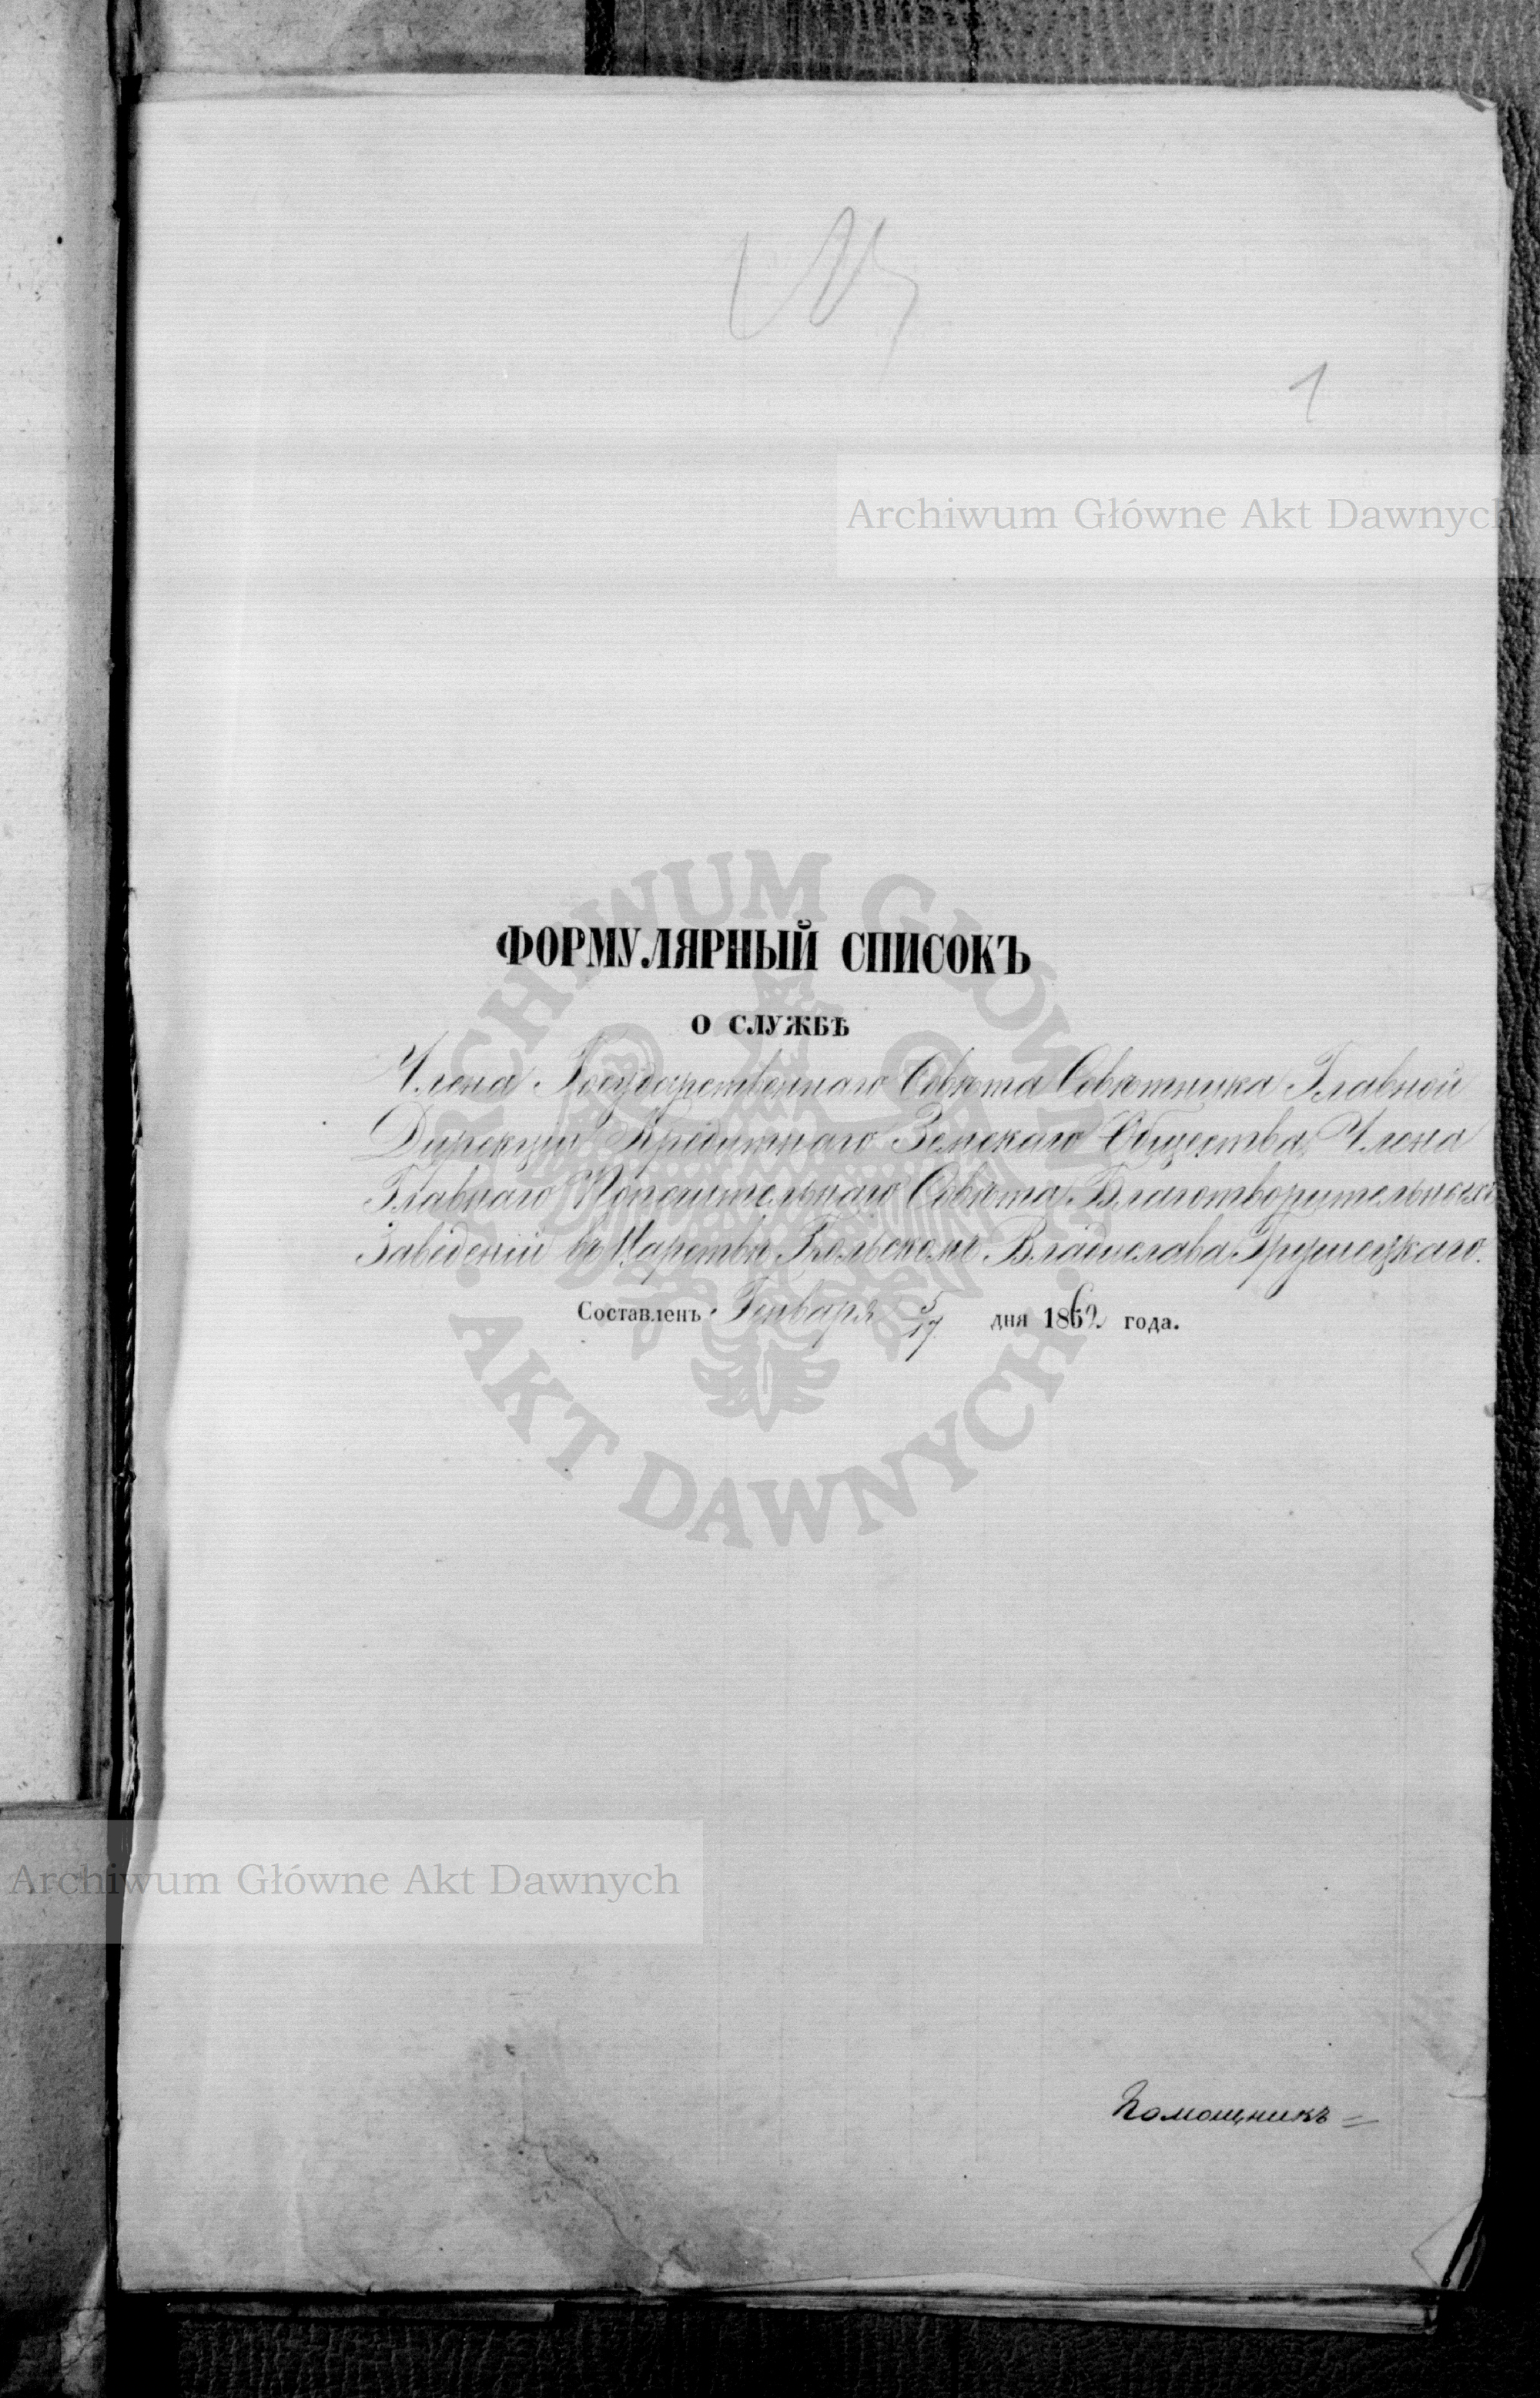 1
Archiwum Główne Akt Dawnych
ARCHIWUM GŁÓWNE AKT DAWNYCH
ФОРМУЛЯРНЫЙ СПИСОКЪ
О СЛУЖБѢ
Члена Государственнаго Совѣта Совѣтника Главной
Дирекціи Кредитнаго Земскаго Общества, Члена
Главнаго Попечительнаго Совѣта Благотворительныхъ
Заведеній въ Царствѣ Польскомъ Владислава Грушецкаго.
Составленъ Генваря 5/17 дня 1862 года.
Archiwum Główne Akt Dawnych
Помощникъ =